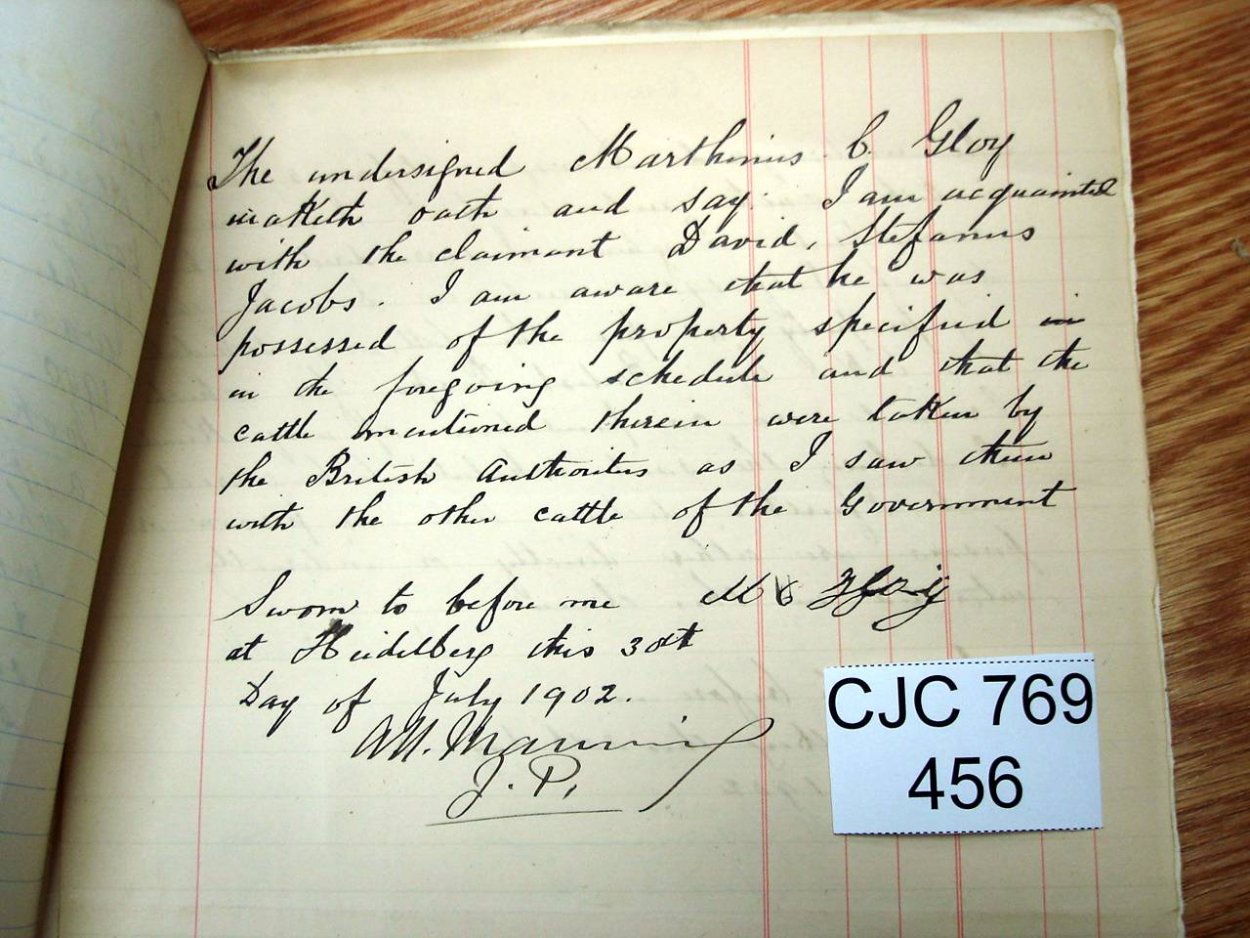 The undersigned Marthinus C. Gloy
maketh oath and say. I am acquainted
with the claimant David, Stefanus
Jacobs. I am aware that he was
possessed of the property specified in
in the foregoing schedule and that the
cattle mentioned therein were taken by
the British Authorities as I saw them
with the other cattle of the Government
Sworn to before me M C
at Heidelberg this 30th
Day of July 1902.
Manning
J. P.
CJC 769
456